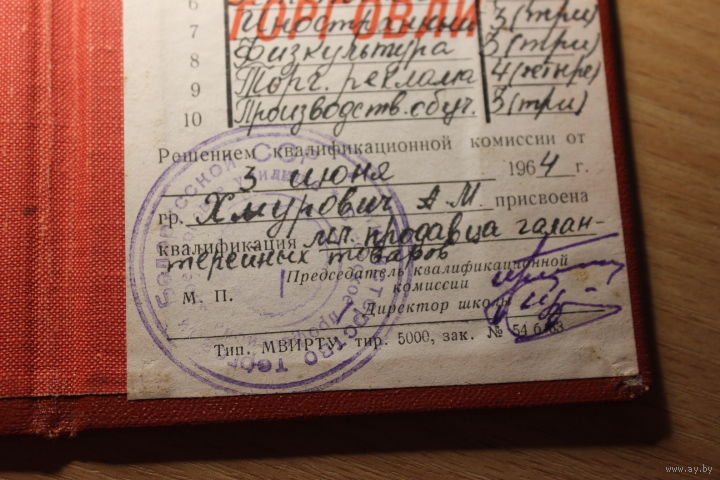 6
ТОРГОВЛИ
7 Иностранный 3 (три)
8 Физкультура 3 (три)
9 Торг. реклама 4 (четыре)
10 Производств. обуч. 3 (три)
Решением квалификационной комиссии от
3 июня 1964 г.
гр. Хмурович А М. присвоена
квалификация мл. продавца галан-
терейных товаров
Председатель квалификационной
комиссии
М. П.
Директор школы
Тип. МВИРТУ, тир. 5000, зак. № 54 6.63
www.ay.by